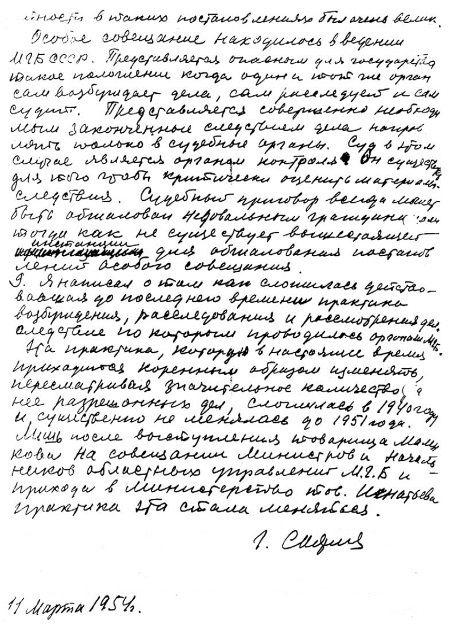 ность в таких постановлениях был очень велик.
Особое совещание находилось в ведении
МГБ СССР. Представляется опасным для государства
такое положение когда один и тот же орган
сам возбуждает дела, сам расследует и сам
судит. Представляется совершенно необходи
мым законченные следствием дела направ
лять только в судебные органы. Суд в этом
случае является органом контроля. Он существует
для того чтобы критически оценить материалы
следствия. Судебный приговор всегда может
быть обжалован недовольным гражданином
тогда как не существует вышестоящей
инстанции для обжалования постанов
лений особого совещания.
9. Я написал о том как сложилась действо-
вавшая до последнего времени практика
возбуждения, расследования и рассмотрения дел,
следствие по которым проводилось органами МГБ.
Эта практика, которую в настоящее время
приходится коренным образом изменять,
пересматривая значительное количество
нее разрешенных дел, сложилась в 1940 году
и существенно не менялась до 1951 года.
Лишь после выступления товарища Мален
кова на совещании Министров и началь
ников областных управлений М.Г.Б и
прихода в Министерство тов. Игнатьева
практика эта стала меняться.
Г. Сафля
11 Марта 1954г.